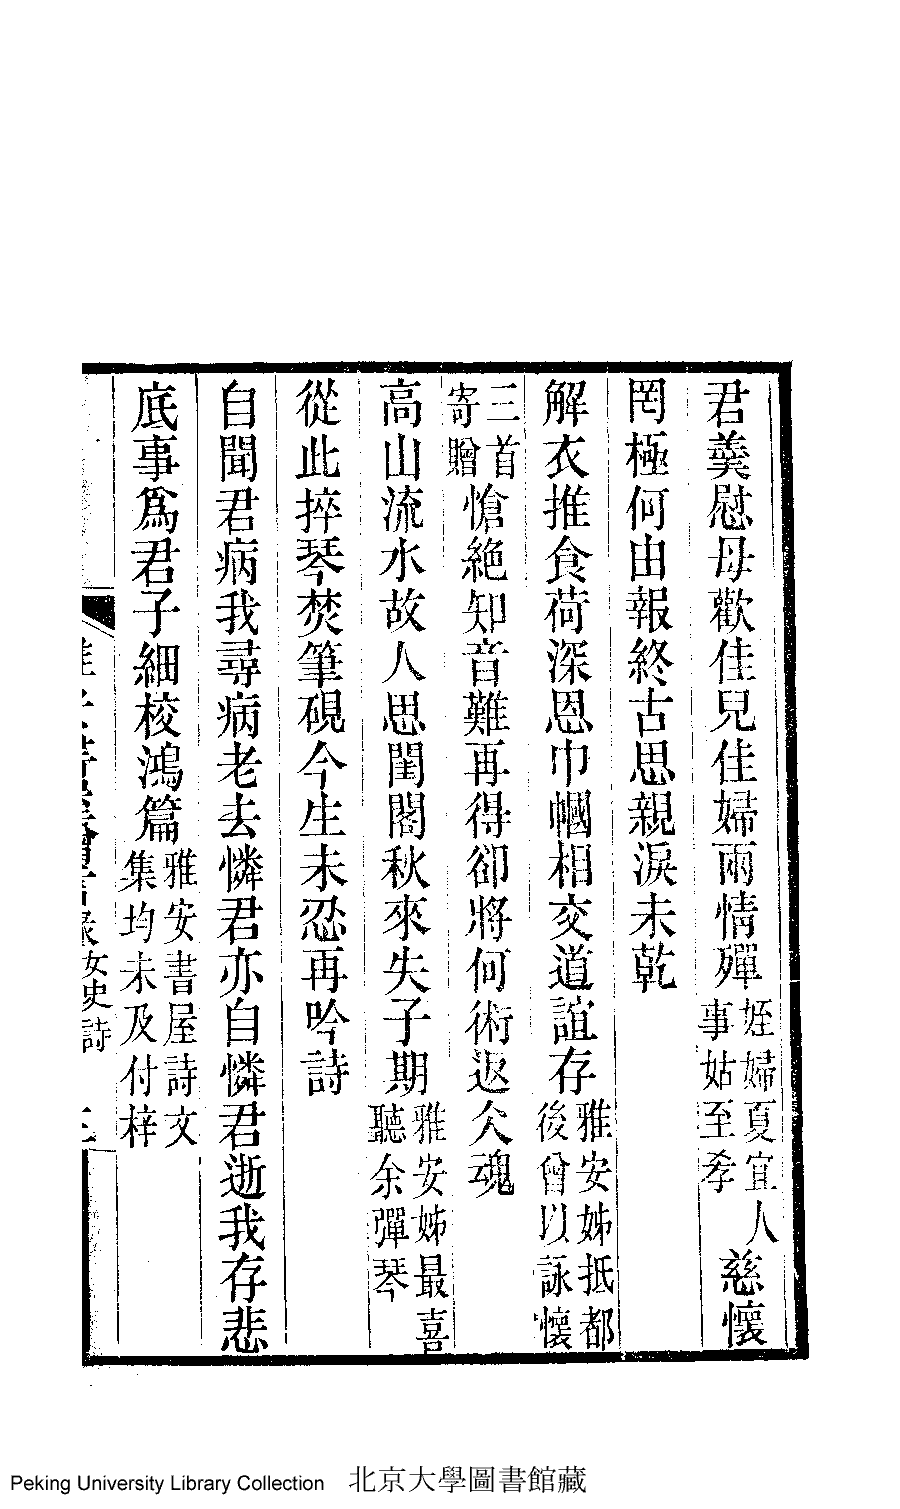 君羹慰母歡佳兒佳婦兩情殫姪婦夏宜人事姑至孝慈懷
罔極何由報終古思親淚未乾
解衣推食荷深恩巾幗相交道誼存雅安姊抵都後曾以詠懷
三首寄贈愴絶知音難再得卻將何術返仌魂
高山流水故人思閨閣秋來失子期雅安姊最喜聽余彈琴
從此捽琴焚筆硯今生未忍再吟詩
自聞君病我尋病老去憐君亦自憐君逝我存悲
底事爲君子細校鴻篇雅安書屋詩文集均未及付梓
女史詩
Peking University Library Collection 北京大學圖書館藏